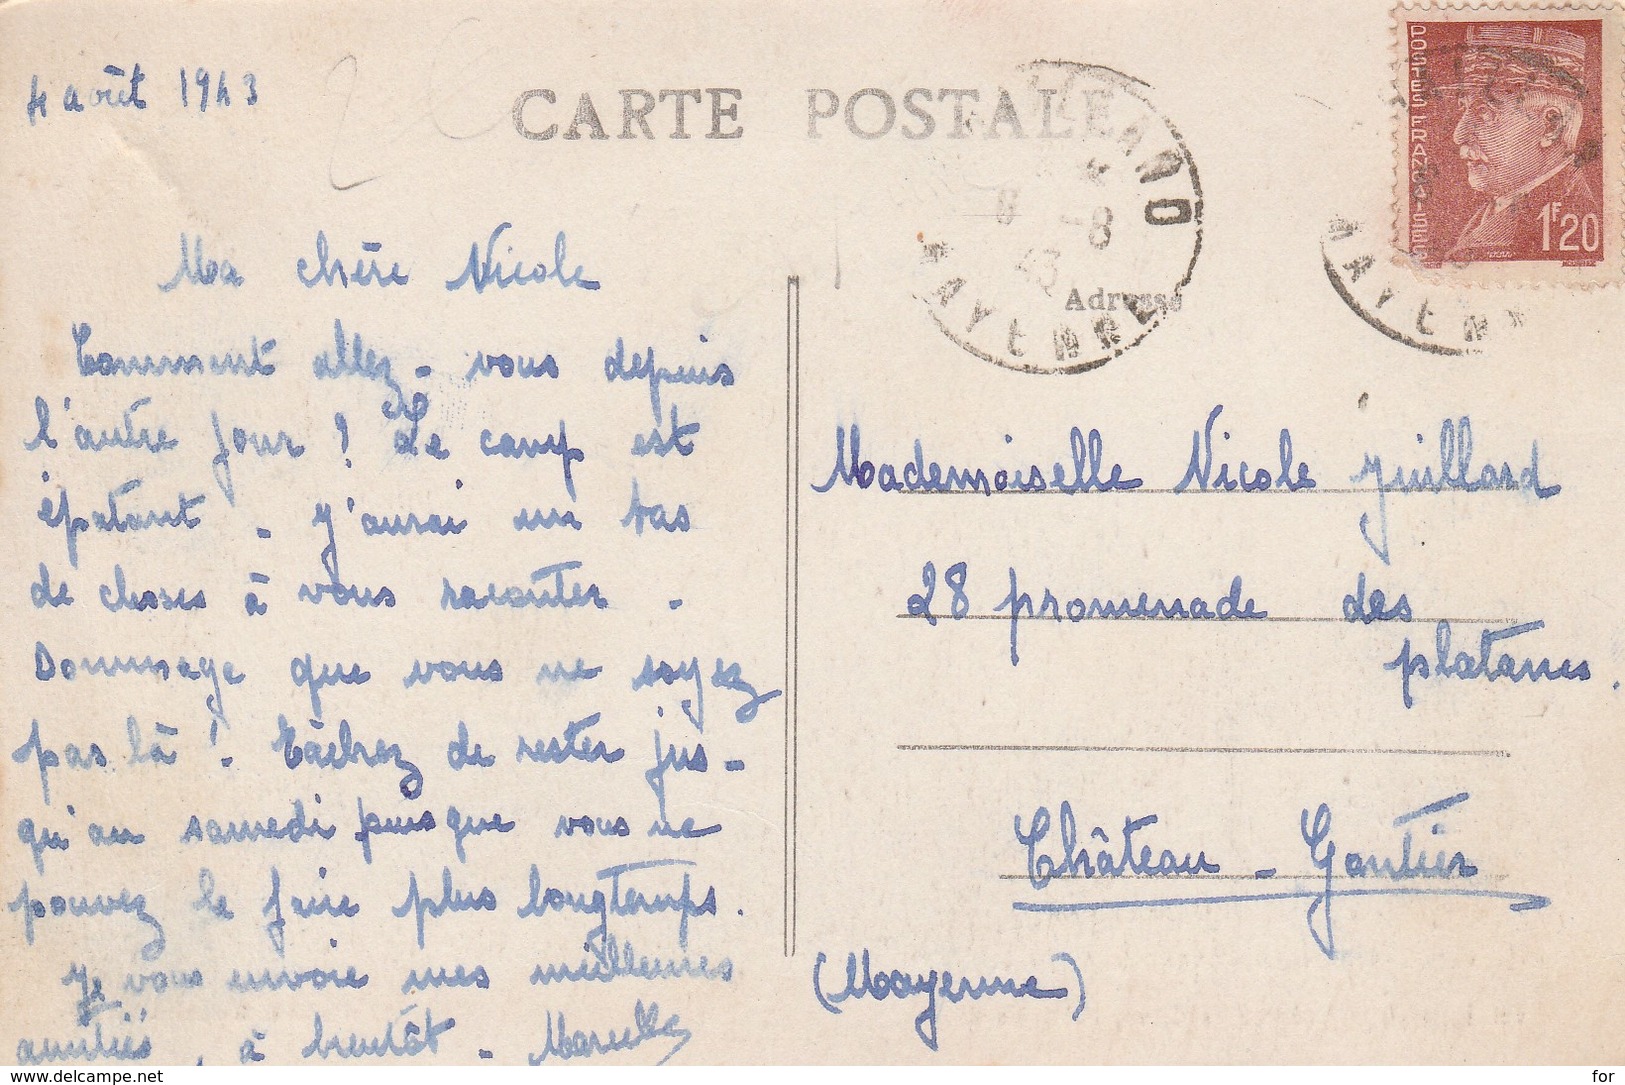 4 août 1943
CARTE POSTALE
POSTES FRANÇAISES
1F20
MAYENNE
8 -8
43
MAYENN
Adresse
Ma chère Nicole
Comment allez-vous depuis
l'autre jour ? Le camp est
épatant - J'aurai un tas
de choses à vous raconter -
Dommage que vous ne soyez
pas là ! Tâchez de rester jus-
qu'au samedi puisque vous ne
pouvez le faire plus longtemps.
Je vous envoie mes meilleures
amitiés, à bientôt - Marcelle
Mademoiselle Nicole Juillard
28 promenade des
platanes.
Château-Gontier
(Mayenne)
delcampe.net
for